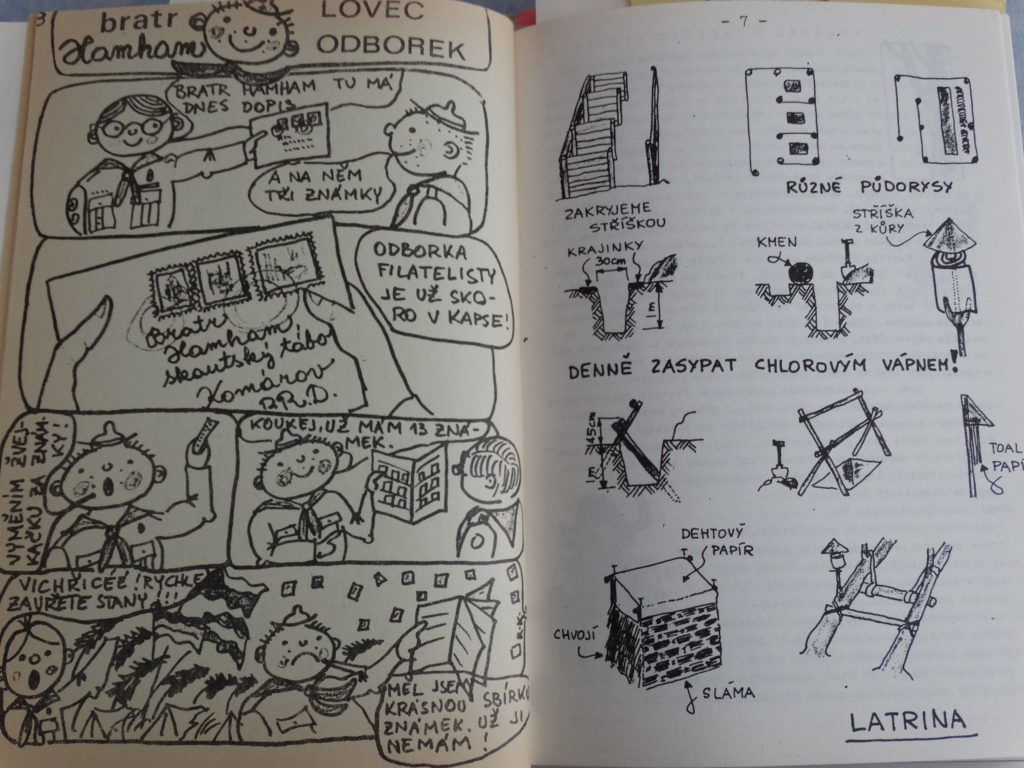 bratr
Hamham
LOVEC
ODBOREK
BRATR HAMHAM TU MÁ
DNES DOPIS
A NA NĚM
TŘI ZNÁMKY
ODBORKA
FILATELISTY
JE UŽ SKO-
RO V KAPSE!
Bratr
Hamham
skautský tábo
Komárov
P.R.D.
VYMĚNÍM ŽVEJ-
KAČKU ZA ZNÁM-
KY!
KOUKEJ, UŽ MÁM 13 ZNÁ-
MEK.
VICHŘICÉÉ! RYCHLE
ZAVŘETE STANY!!!
MĚL JSEM
KRÁSNOU SBÍRKU
ZNÁMEK. UŽ JI
NEMÁM!
- 7 -
RŮZNÉ PŮDORYSY
ZAKRYJEME
STŘÍŠKOU
KRAJINKY
30cm
KMEN
STŘÍŠKA
Z KŮRY
DENNĚ ZASYPAT CHLOROVÝM VÁPNEM!
45cm
TOAL
PAPÍ
DEHTOVÝ
PAPÍR
CHVOJÍ
SLÁMA
LATRINA